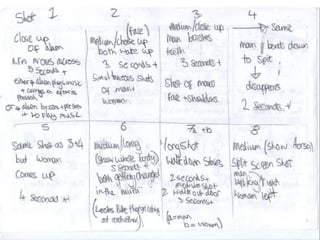 Shot 1
Close up
of alarm
Arm moves across
3 seconds +
alarm plays music
+ comes on
or alarm by comes + presses
it to play music
2
(Face)
Medium/close up
both wake up
3 seconds +
Simultaneous Shots
of man/
woman.
3
Medium/close up
man brushes
teeth
3 seconds +
Shot of mans
face + shoulders
4
Same
man bends down
to spit.
↓
disappears
2 seconds +
5
Same shot as 3+4
but woman
comes up
4 seconds +
6
medium/long
(show whole body)
5 seconds +
both getting changed
in the mirror
(Looks like they're looking
at each other)
7a + b
long shot
Walk down stairs
2 seconds +
medium shot
2 walk out door
2 seconds +
(a = man
b = woman)
8
Medium (show torso)
Split screen shot
man
right
Woman left